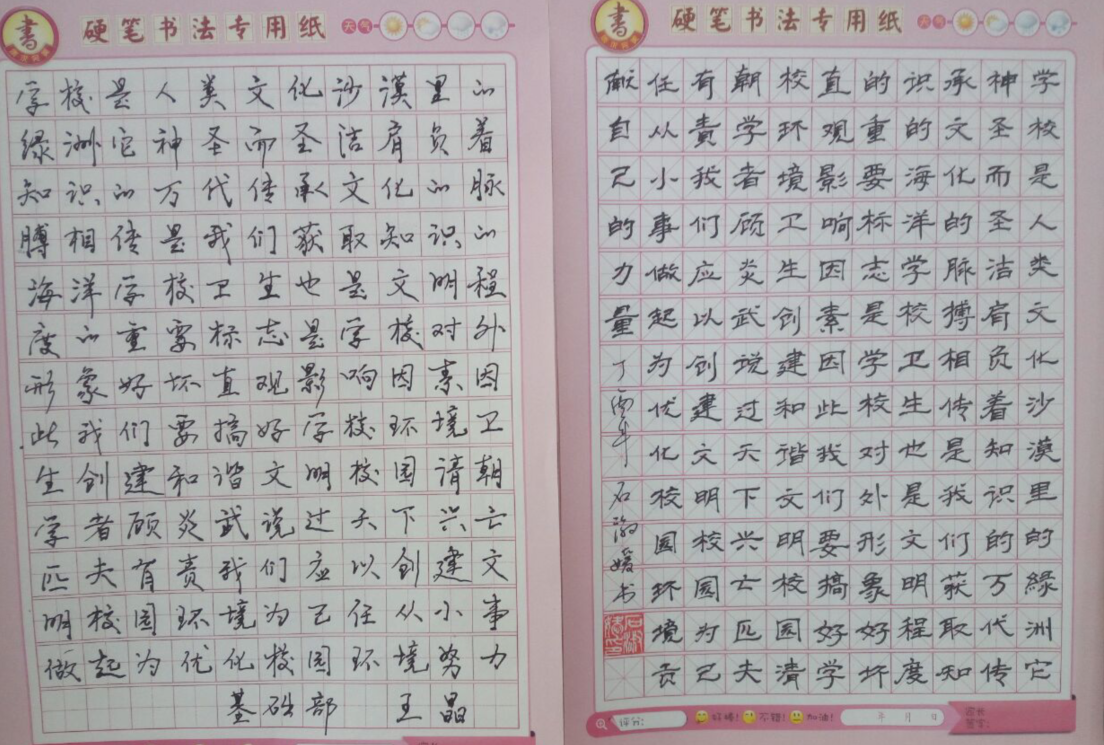 書
硬笔书法专用纸
天气
学校是人类文化沙漠里的
绿洲它神圣而圣洁肩负着
知识的万代传承文化的脉
膊相传是我们获取知识的
海洋学校卫生也是文明程
度的重要标志是学校对外
形象好坏直观影响因素因
此我们要搞好学校环境卫
生创建和谐文明校园清朝
学者顾炎武说过天下兴亡
匹夫有责我们应以创建文
明校园环境为己任从小事
做起为优化校园环境努力
基础部 王晶
書
硬笔书法专用纸
天气
学校是人类文化沙漠里的綠洲它
神圣而圣洁肩负着知识的万代传
承文化的脉搏相传是我们获取知
识的海洋学校卫生也是文明程度
的重要标志是学校对外形象好坏
直观影响因素因此我们要搞好学
校环境卫生创建和谐文明校园清
朝学者顾炎武说过天下兴亡匹夫
有责我们应以创建文明校园为己
任从小事做起为优化校园环境贡
献自己的力量 石淑媛书
好棒! 不错! 加油! 年 月 日